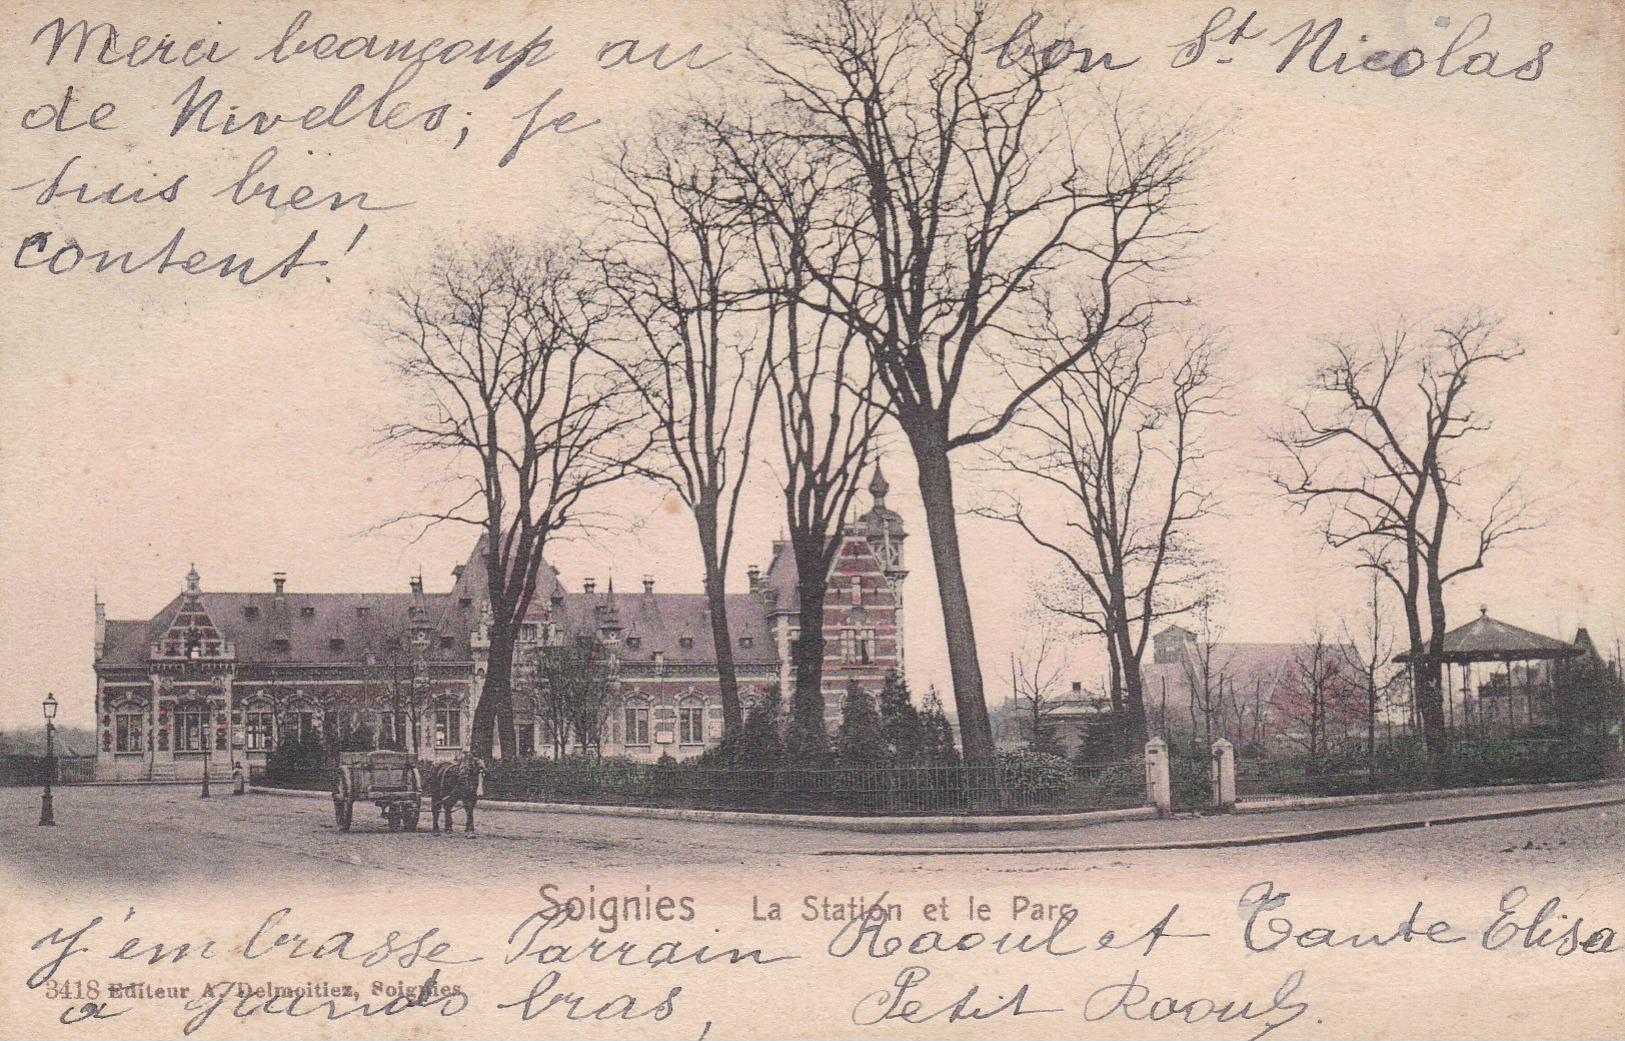 Merci beaucoup au bon St Nicolas
de Nivelles; je
suis bien
content!
Soignies La Station et le Parc
J'embrasse Parrain Raoul et Tante Elisa
3418 Editeur A. Delmoitiez, Soignies
a grands bras, Petit Raoul.